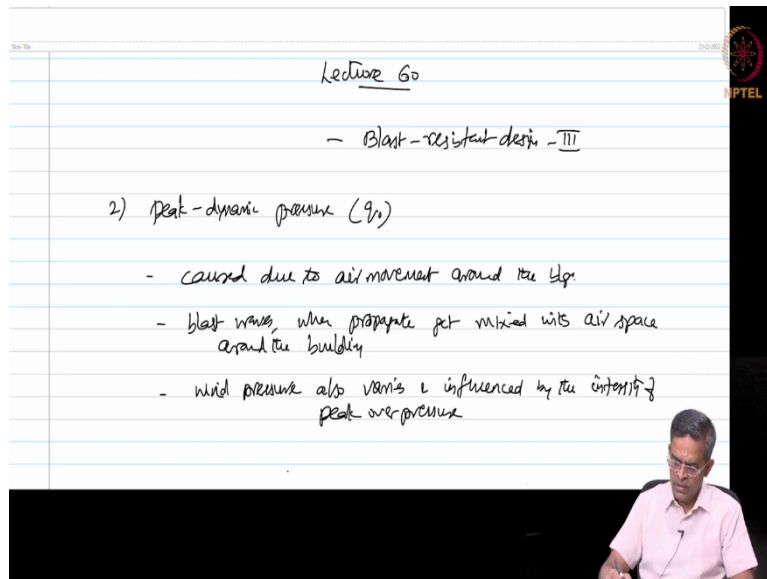 Note Title
NPTEL
Lecture 60
- Blast-resistant design - III
2) peak-dynamic pressure (q₀)
- caused due to air movement around the bldg.
- blast waves, when propagate get mixed with air space
around the building
- wind pressure also varies & influenced by the intensity of
peak over pressure